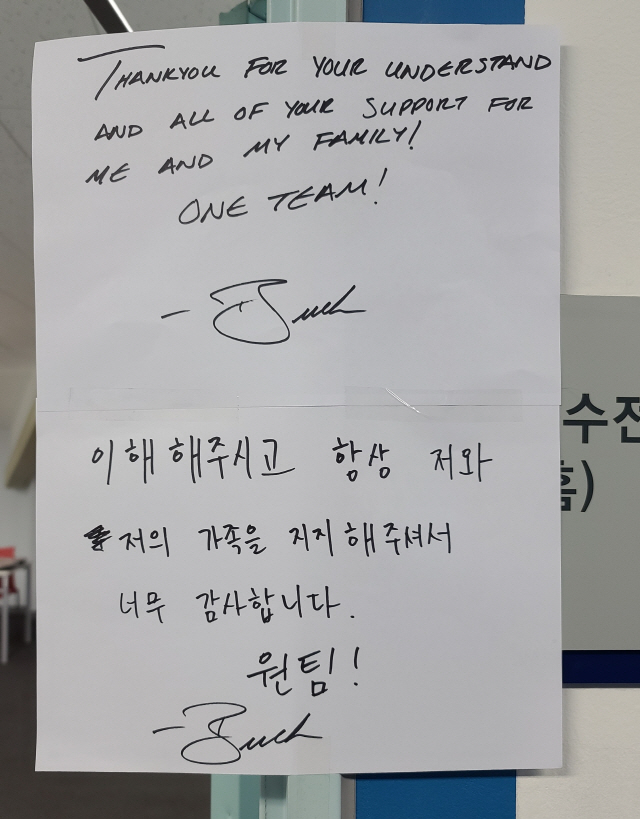 THANKYOU FOR YOUR UNDERSTAND
AND ALL OF YOUR SUPPORT FOR
ME AND MY FAMILY!
ONE TEAM!
- Buch
이해해주시고 항상 저와
저의 가족을 지지해주셔서
너무 감사합니다.
원팀!
- Buch
수전
홈)